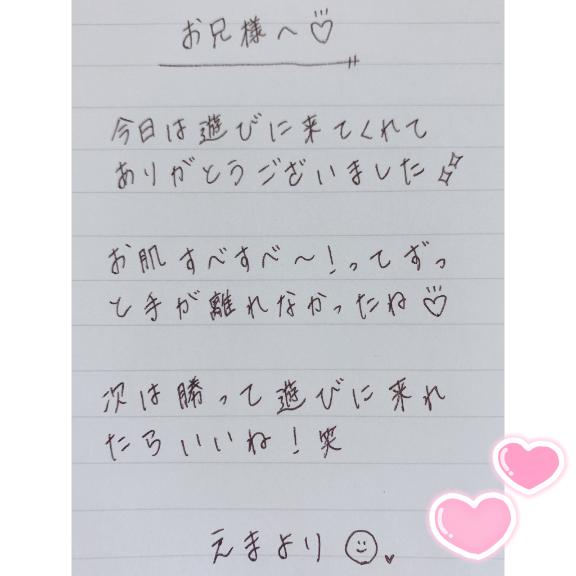 お兄様へ♡
今日は遊びに来てくれて
ありがとうございました✨
お肌すべすべ〜！ってずっ
と手が離れなかったね♡
次は勝って遊びに来れ
たらいいね！笑
えまより☺♥